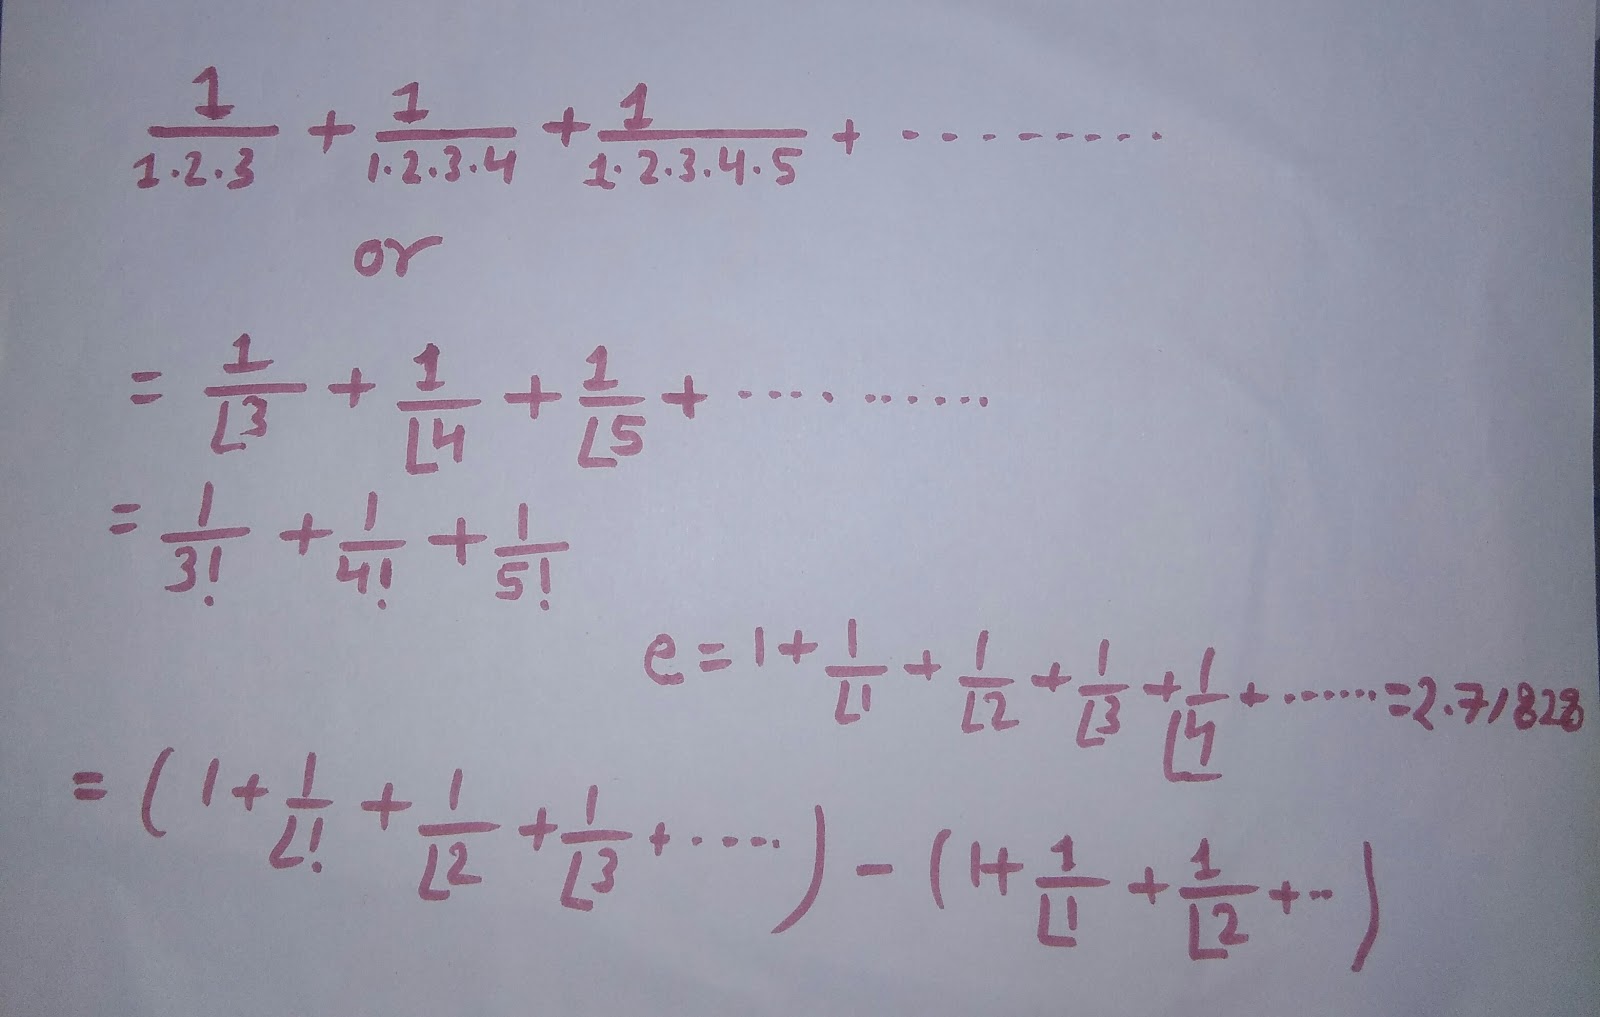 1/1·2·3 + 1/1·2·3·4 + 1/1·2·3·4·5 + ·········
or
= 1/⌊3 + 1/⌊4 + 1/⌊5 + ···········
= 1/3! + 1/4! + 1/5!
e = 1 + 1/⌊1 + 1/⌊2 + 1/⌊3 + 1/⌊4 + ······· = 2.71828
= ( 1 + 1/⌊! + 1/⌊2 + 1/⌊3 + ····· ) - ( 1 + 1/⌊1 + 1/⌊2 + ·· )